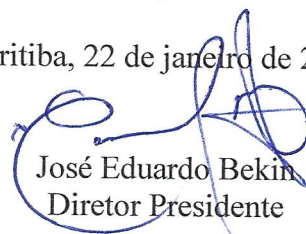 ritiba, 22 de janeiro de 2
José Eduardo Bekin
Diretor Presidente